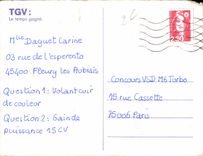 TGV :
Le temps gagné.
Mlle Daguet Carine
03 rue de l'esperento
45400 Fleury les Aubrais
Question 1: Volant cuir
de couleur
Question 2: Gain de
puissance 15 CV
Concours VSD M6 Turbo
15 rue Cassette
75006 Paris